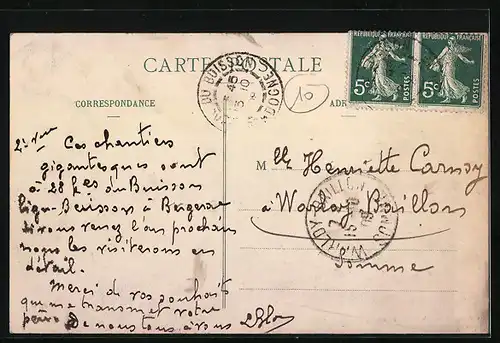 CARTE POSTALE
CORRESPONDANCE
RÉPUBLIQUE FRANÇAISE
5c POSTES
RÉPUBLIQUE FRANÇAISE
5c POSTES
DU BUISSON
10
Ces chantiers
gigantesques sont
à 28 kes du Buisson
ligne Buisson à Bergerac
si vous venez l'an prochain
nous les visiterons en
détail.
Merci de vos souhaits
que me transmet votre
père
De nous tous à vous
Mlle Henriette Carnoy
à Warloy Baillon
Somme